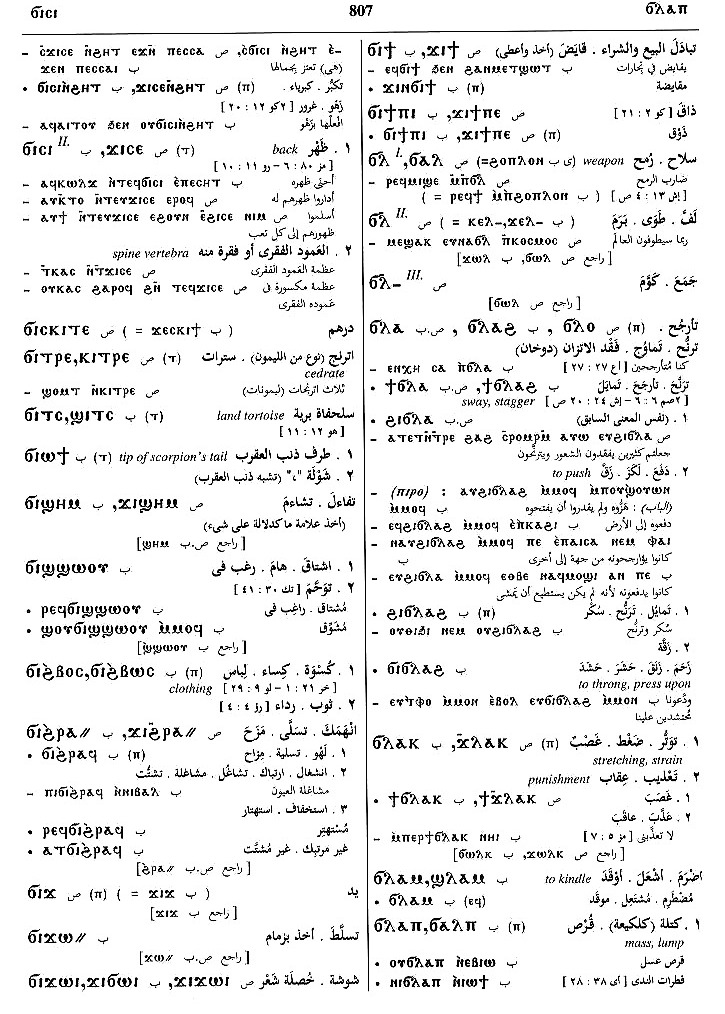 ϭⲓⲥⲓ 807 ϭⲗⲁⲡ
– ϭϫⲓⲥⲉ ⲛ̄ϩⲏⲧ ⲉϫⲛ ⲡⲉⲥⲥⲁ ص, ϭϭⲓⲥⲓ ⲛ̀ϩⲏⲧ ⲉ̀-
ϫⲉⲛ ⲡⲉⲥⲥⲁⲓ ب (هى) تعتز بجمالها
• ϭⲓⲥⲓⲛϩⲏⲧ ب, ϫⲓⲥⲉⲛ̄ϩⲏⲧ ص (ⲡⲓ) تكبُّر . كبرياء .
زَهْو . غرور [٢كو ١٢ : ٢٠]
– ⲁϥⲁⲓⲧⲟⲩ ϧⲉⲛ ⲟⲩϭⲓⲥⲓⲛ̀ϩⲏⲧ ب
ϭⲓⲥⲓ II. ب, ϫⲓⲥⲉ ص (ⲧ) back ١ . ظَهْر
[مز ٨٠ : ٦ – رو ١١ : ١٠]
– ⲁϥⲕⲱⲗϫ ⲛ̀ⲧⲉϥϭⲓⲥⲓ ⲉ̀ⲡⲉⲥⲏⲧ ب أحنى ظهره
– ⲁⲩⲕⲧⲟ ⲛ̄ⲧⲉⲩϫⲓⲥⲉ ⲉⲣⲟϥ ص أداروا ظهورهم له
– ⲁⲩϯ ⲛ̄ⲧⲉⲩϫⲓⲥⲉ ⲉϩⲟⲩⲛ ⲉ̄ϩⲓⲥⲉ ⲛⲓⲙ ص أسلموا
ظهورهم إلى كل تعب
٢ . العَمود الفقرى أو فقرة منه spine vertebra
– ⲧ̄ⲕⲁⲥ ⲛ̄ⲧϫⲓⲥⲉ ص عظمة العمود الفقرى
– ⲟⲩⲕⲁⲥ ϩⲁⲣⲟϥ ϩⲛ̄ ⲧⲉϥϫⲓⲥⲉ ص عظمة مكسورة فى
عَموده الفقرى
ϭⲓⲥⲕⲓⲧⲉ ص ( = ϫⲉⲥⲕⲓϯ ب ) درهم
ϭⲓⲧⲣⲉ,ⲕⲓⲧⲣⲉ ص (ⲧ) اترنج (نوع من الليمون) . سترات
cedrate
– ϣⲟⲙⲧ ⲛ̄ⲕⲓⲧⲣⲉ ص ثلاث اترنجات (ليمونات)
ϭⲓⲧⲥ,ϣⲓⲧⲥ ب (ⲧ) land tortoise سلحفاة برية
[هو ١٢ : ١١]
ϭⲓⲱϯ ب (ⲧ) tip of scorpion's tail ١ . طرف ذنب العقرب
٢ . شَوْلَة "،" (تشبه ذنب العقرب)
ϭⲓϣⲏⲙ ب, ϫⲓϣⲏⲙ ص تفاءلَ . تشاءمَ
(أخذ علامة ما كدلالة على شىء)
[راجع ص.ب ϣⲏⲙ]
ϭⲓϣϣⲱⲟⲩ ب ١ . اشتاقَ . هامَ . رغب فى
٢ . تَوحَّمَ [تك ٣٠ : ٤١]
• ⲣⲉϥϭⲓϣϣⲱⲟⲩ ب مُشتاق . راغِب فى
• ϣⲟⲩϭⲓϣϣⲱⲟⲩ ⲙ̀ⲙⲟϥ ب مُشَوِّق
[راجع ب ϣϣⲱⲟⲩ]
ϭⲓϩ̀ⲃⲟⲥ,ϭⲓϩ̀ⲃⲱⲥ ب (ⲡⲓ) ١ . كُسْوَة . كِساء . لِباس
clothing [خر ٢١ : ١ – لو ٩ : ٢٩]
٢ . ثوب . رداء [رؤ ٤ : ٤]
ϭⲓϩ̀ⲣⲁ// ب, ϫⲓϩ̄ⲣⲁ// ص انْهَمَكَ . تسلَّى . مَزَحَ
• ϭⲓϩ̀ⲣⲁϥ ب (ⲡⲓ) ١ . لَهْو . تسلية . مِزاح
٢ . انشغال . ارتباك . تشاغُل . مشاغلة . تشتُّت
– ⲡⲓϭⲓϩ̀ⲣⲁϥ ⲛ̀ⲛⲓⲃⲁⲗ ب مشاغلة العيون
٣ . استخفاف . استهتار
• ⲣⲉϥϭⲓϩ̀ⲣⲁϥ ب مُستهتِر
• ⲁⲧϭⲓϩ̀ⲣⲁϥ ب غير مرتبك . غير مُشتَّت
[راجع ص.ب ϩ̀ⲣⲁ//]
ϭⲓϫ ص (ⲡⲓ) ( = ϫⲓϫ ب ) يد
[راجع ب ϫⲓϫ]
ϭⲓϫⲱ// ب تسلَّطَ . أخذ بزمام
[راجع ص.ب ϫⲱ//]
ϭⲓϫⲱⲓ,ϫⲓϭⲱⲓ ب, ϫⲓϫⲱⲓ ص شوشة . خُصلَة شَعْر
ϭⲓϯ ب, ϫⲓϯ ص تبادَلَ البيع والشراء . قايَضَ (أخذ وأعطى)
– ⲉϥϭⲓϯ ϧⲉⲛ ϩⲁⲛⲙⲉⲧϣⲱⲧ ب يقايض فى تجارات
• ϫⲓⲛϭⲓϯ ب (ⲡⲓ) مقايضة
ϭⲓϯⲡⲓ ب, ϫⲓϯⲡⲉ ص ذاقَ [كو ٢ : ٢١]
• ϭⲓϯⲡⲓ ب, ϫⲓϯⲡⲉ ص (ⲡⲓ) ذَوْق
ϭⲗ I., ϭⲁⲗ ص (=ϩⲟⲡⲗⲟⲛ ى ب) weapon سلاح . رُمح
– ⲣⲉϥⲙⲓϣⲉ ⲙ̄ⲡϭⲗ ص ضارب الرمح
( = ⲣⲉϥϯ ⲙ̀ⲡϩⲟⲡⲗⲟⲛ ب ) [إش ١٣ : ٤ ص]
ϭⲗ II. ص ( = ⲕⲉⲗ-,ϫⲉⲗ- ب ) لَفَّ . طَوَى . بَرَمَ
– ⲙⲉϣⲁⲕ ⲉⲩⲛⲁϭⲗ ⲡ̄ⲕⲟⲥⲙⲟⲥ ص ربما سيطوفون العالم
[راجع ص ϭⲱⲗ, ب ϫⲱⲗ]
ϭⲗ- III. ص جَمَعَ . كَوَّمَ
[راجع ص ϭⲱⲗ]
ϭⲗⲁ ص.ب , ϭⲗⲁϩ ب , ϭⲗⲟ ص (ⲡⲓ) تأرجُح .
ترنُّح . تماوُج . فَقْد الاتزان (دوخان)
– ⲉⲛⲭⲏ ⲥⲁ ⲡ̀ϭⲗⲁ ب كنا مُتأرجحين [أع ٢٧ : ٢٧]
• ϯϭⲗⲁ ص.ب, ϯϭⲗⲁϩ ب تَرَنَّحَ . تَأرجَحَ . تَمايَلَ
sway, stagger [٢صم ٦ : ٦ – إش ٢٤ : ٢٠ ص]
• ϩⲓϭⲗⲁ ص.ب ١ . (نفس المعنى السابق)
– ⲁⲧⲉⲧⲛ̄ⲧⲣⲉ ϩⲁϩ ϭⲣⲟⲙⲣⲙ̄ ⲁⲩⲱ ⲉⲩϩⲓϭⲗⲁ ص
جعلتم كثيرين يفقدون الشعور ويترنّحون
to push ٢ . دَفَعَ . لَكَزَ . زَقَّ
– (ⲡⲓⲣⲟ) : ⲁⲩϩⲓϭⲗⲁϩ ⲙ̀ⲙⲟϥ ⲙ̀ⲡⲟⲩϣ̀ⲟⲩⲱⲛ
ⲙ̀ⲙⲟϥ ب (الباب) : هَزُّوه ولم يقدروا أن يفتحوه
– ⲉϥϩⲓϭⲗⲁϩ ⲙ̀ⲙⲟϥ ⲉ̀ⲡⲕⲁϩⲓ ب دفعوه إلى الأرض
– ⲛⲁⲩϩⲓϭⲗⲁϩ ⲙ̀ⲙⲟϥ ⲡⲉ ⲉ̀ⲡⲁⲓⲥⲁ ⲛⲉⲙ ⲫⲁⲓ
ب كانوا يؤرجحونه من جهة إلى أخرى
– ⲉⲩϩⲓϭⲗⲁϩ ⲙ̀ⲙⲟϥ ⲉⲑⲃⲉ ⲛⲁϥⲙⲟϣⲓ ⲁⲛ ⲡⲉ ب
كانوا يدفعونه لأنه لم يكن يستطيع أن يمشى
• ϩⲓϭⲗⲁϩ ب (ⲡⲓ) ١ . تمايُل . تَرَنُّح . سُكْر
– ⲟⲩⲑⲓϧⲓ ⲛⲉⲙ ⲟⲩϩⲓϭⲗⲁϩ ب سُكر وترنُّح
٢ . زَقَّة
• ϭⲓϭⲗⲁϩ ب زَحَمَ . زَنَقَ . حَشَرَ . حَشَدَ
to throng, press upon
– ⲉⲩⲧⲫⲟ ⲙ̀ⲙⲟⲛ ⲉ̀ⲃⲟⲗ ⲉⲩϭⲓϭⲗⲁϩ ⲙ̀ⲙⲟⲛ ب ودَّعونا
مُحتشدين علينا
ϭⲗⲁⲕ ب, ϫ̄ⲗⲁⲕ ص (ⲡⲓ) ١ . تَوتُّر . ضَغط . غَصْبٌ
stretching, strain
punishment ٢ . تَعذيب . عِقاب
• ϯϭⲗⲁⲕ ب, ϯϫ̄ⲗⲁⲕ ص ١ . غَصَبَ
٢ . عَذَّبَ . عاقَبَ
– ⲙ̀ⲡⲉⲣϯϭⲗⲁⲕ ⲛⲏⲓ ب لا تعذِّبنى [مز ٥ : ٧]
[راجع ص ϫⲱⲗⲕ, ب ϭⲱⲗⲕ]
ϭⲗⲁⲙ,ϣⲗⲁⲙ ب to kindle اضْرَمَ . أشْعَلَ . أوْقَدَ
• ϭⲗⲁⲙ ب (ⲉϥ) مُضْطَرِم . مُشتَعِل . موقَد
ϭⲗⲁⲡ,ϭⲁⲗⲡ ب (ⲡⲓ) ١ . كتلة (كلكيعة) . قُرْص
mass, lump
• ⲟⲩϭⲗⲁⲡ ⲛ̀ⲉⲃⲓⲱ ب قرص عسل
• ⲛⲓϭⲗⲁⲡ ⲛ̀ⲓⲱϯ ب قطرات الندى [أى ٣٨ : ٢٨]